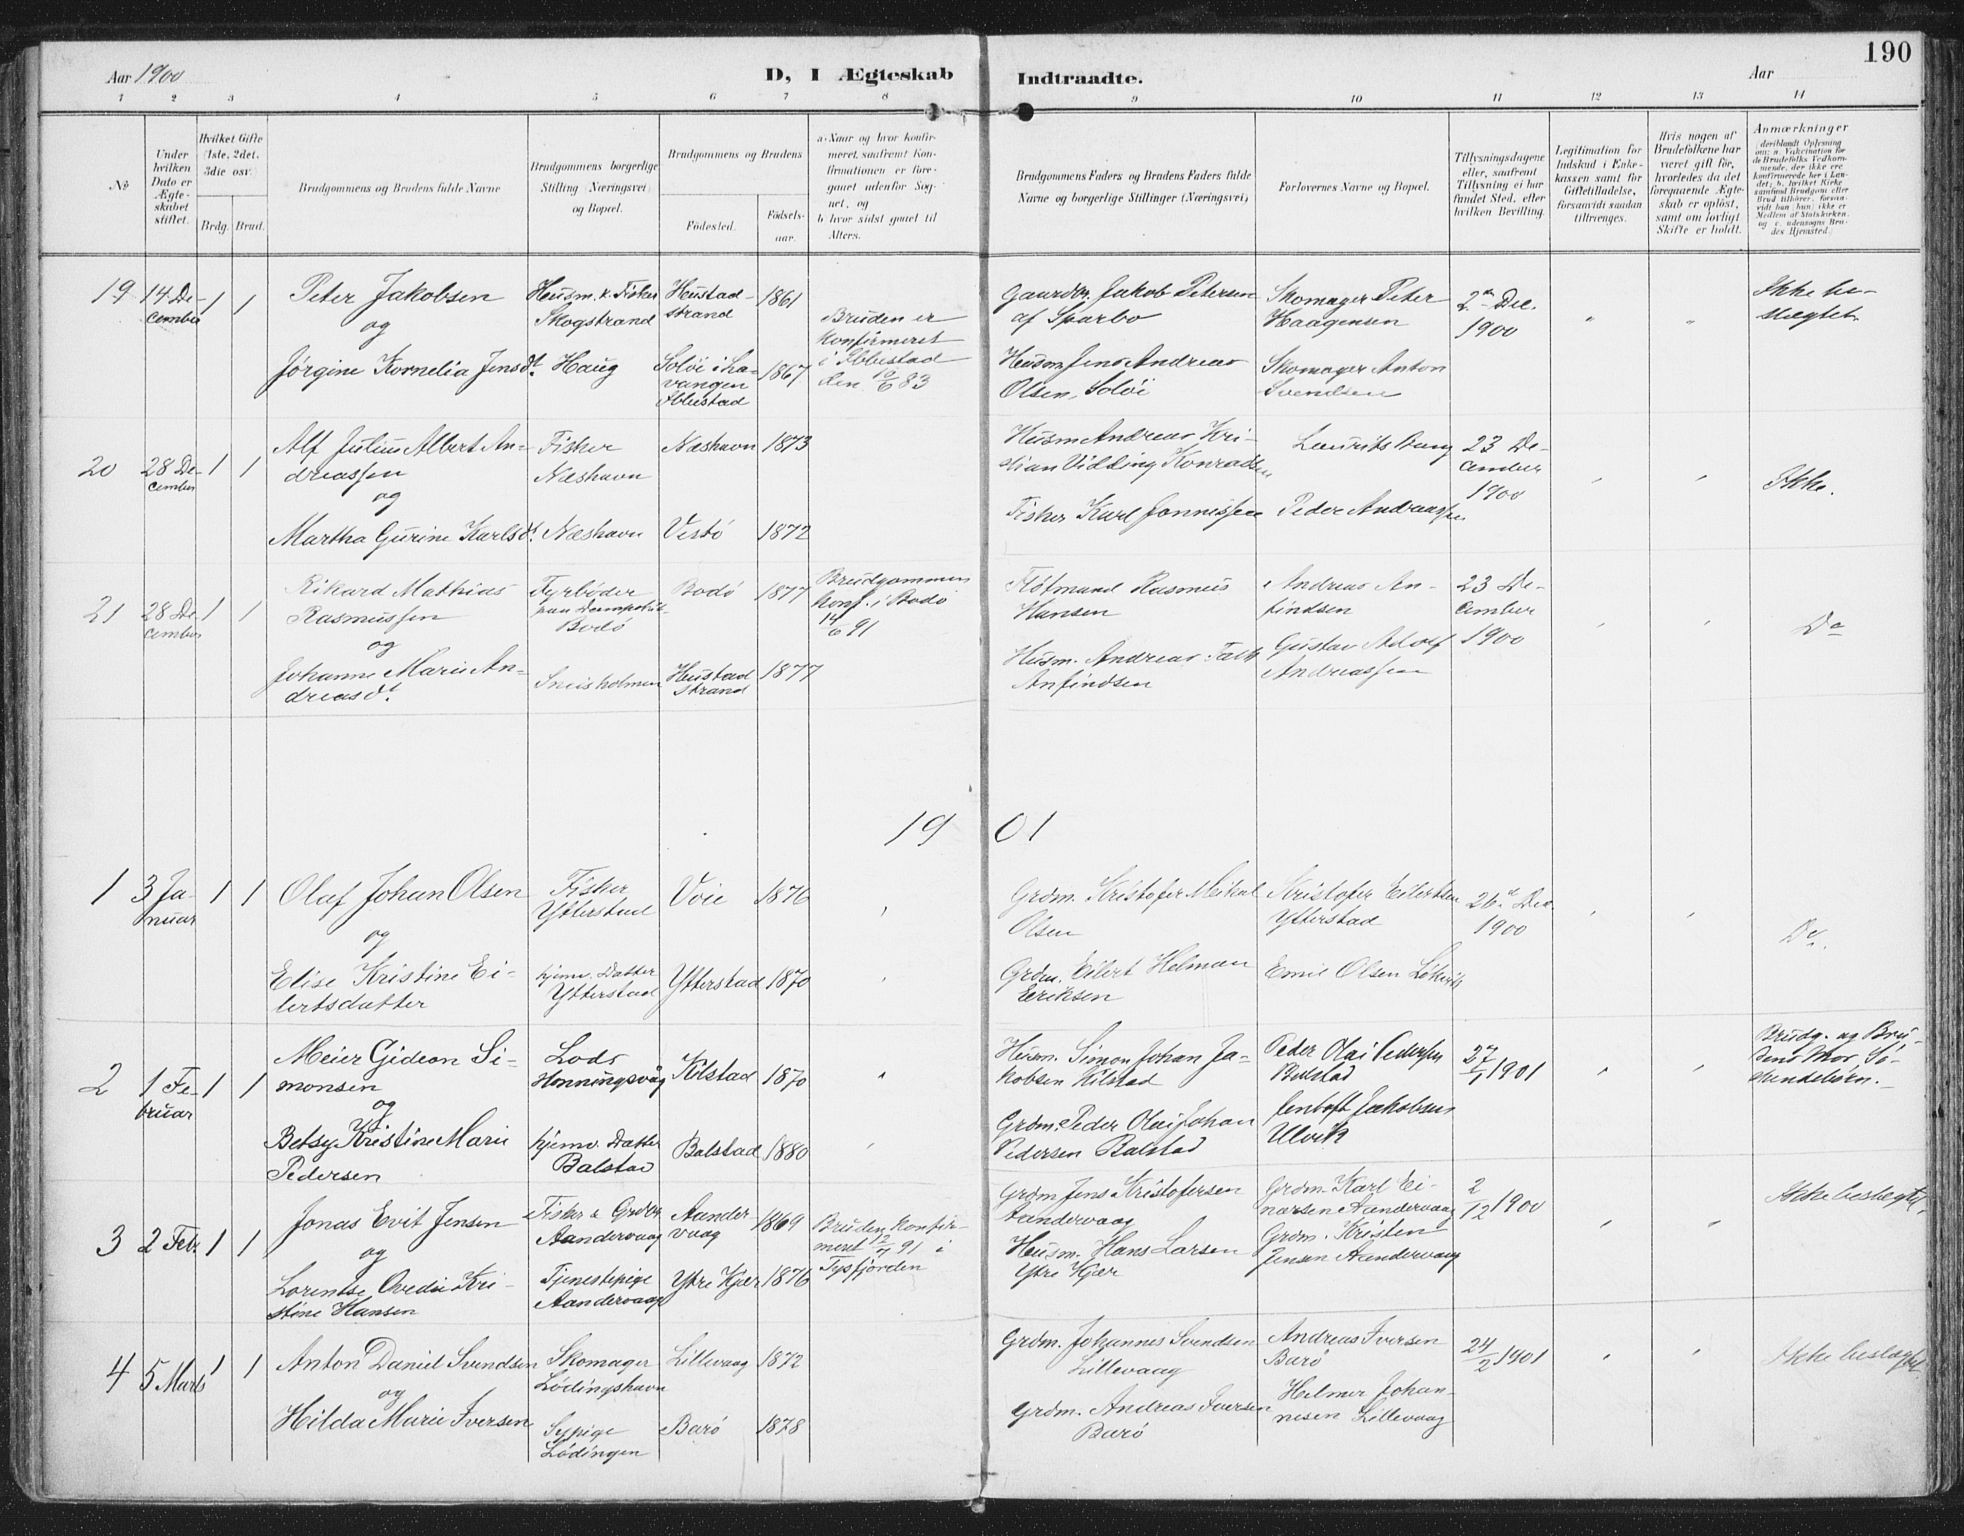 190
Aar 1900
D, I Ægteskab Indtraadte.
Aar
1 2 3 4 5 6 7 8 9 10 11 12 13 14
No
Under hvilken Dato er Ægteskabet stiftet.
Hvilket Gifte (1ste, 2det, 3die osv.)
Brdg. Brud.
Brudgommens og Brudens fulde Navne
Brudgommens borgerlige Stilling (Næringsvei) og Bopæl.
Brudgommens og Brudens
Födested.
Födsels-aar.
a. Naar og hvor konfirmeret, saafremt Konfirmationen er foregaaet udenfor Sognet, og
b hvor sidst gaaet til Alters.
Brudgommens Faders og Brudens Faders fulde Navne og borgerlige Stillinger (Næringsvei)
Forlovernes Navne og Bopæl.
Tillysningsdagene eller, saafremt Tillysning ei har fundet Sted, efter hvilken Bevilling.
Legitimation for Indskud i Enkekassen samt for Giftetilladelse, forsaavidt saadan tiltrænges.
Hvis nogen af Brudefolkene har været gift för, hvorledes da det foregaaende Ægteskab er oplöst, samt om lovligt Skifte er holdt.
Anmærkninger
19 14 De-
cember 1 1
Peter Jakobsen
og
Jørgine Kornelia Jensdt.
Husm. & Fisker
Skogstrand
Haug
Hustad-
strand
Soløi i La-
vangen
Ibbestad
1861
1867
Bruden er
konfirmeret
i Ibbestad
den 10/6 83
Gaardbr. Jakob Petersen
af Sparbo
Husm. Jens Andreas
Olsen, Soløi
Skomager Peter
Haagensen
Skomager Anton
Svendsen
2den Dec.
1900
Ikke be-
slægtet.
20 28 De-
cember 1 1
Alf Julius Albert An-
dreassen
og
Martha Gurine Karlsdt.
Fisker
Næshavn
Næshavn
Næshavn
Vestø
1873
1872
Husm Andreas Kri-
stian Vilding Konradsen
Fisker Karl Jonnissen
Laurits Bang
Peder Andreassen
23 De-
cember
1900
Ikke.
21 28 De-
cember 1 1
Rikard Mathias
Rasmussen
og
Johanne Marie An-
dreasdt
Fyrbøder
paa Dampskib
Bodø
Sneisholmen
Bodø
Hustad
strand
1877
1877
Brudgommen
konf. i Bodø
14/6 91
Fløtmand Rasmus
Hansen
Husm. Andreas Falk
Anfindsen
Andreas An-
findsen
Gustav Adolf
Andreassen
23 De-
cember
1900
Do
19 01
1 3 Ja-
nuar 1 1
Olaf Johan Olsen
og
Elise Kristine Ei-
lertsdatter
Fisker
Ytterstad
hjemv. Datter
Ytterstad
Voie
Ytterstad
1876
1870
Grdm. Kristofer Meikal
Olsen
Grdm. Eilert Helman
Eeriksen
Kristofer Eilertsen
Ytterstad
Emil Olsen
26d Dec
1900
Do.
2 1 Fe-
bruar 1 1
Meier Gideon Si-
monsen
og
Betsy Kristine Marie
Pedersen
Lods
Honningsvåg
hjemv. Datter
Balstad
Kilstad
Balstad
1870
1880
Husm. Simon Johan Ja-
kobsen Kilstad
Grdm. Peder Olai Johan
Pedersen Balstad
Peder Olai Pedersen
Balstad
Jentoft Jakobsen
Ulvik
27/1 1901
Brudg. og Bru-
dens Mor, Sø-
skendebørn.
3 2 Feb. 1 1
Jonas Evit Jensen
og
Lorentse Ovedie Kri-
stine Hansen
Fisker & Grdbr.
Aandervaag
Tjenestepige
Aandervaag
Aander-
vaag
Ytre Kjær
1869
1876
Bruden konfir-
meret 12/7 91 i
Tysfjorden
Grdm Jens Kristofersen
Aandervaag
Husm. Hans Larsen
Ytre Kjær
Grdm. Karl Ei-
narsen Aandervaag
Grdm. Kristen
Jensen Aandervaag
2/12 1900
Ikke beslægtet.
4 5 Marts 1 1
Anton Daniel Svendsen
og
Hilda Marie Iversen
Skomager
Lødingshavn
Sypige
Lødingen
Lillevaag
Barø
1872
1878
Grdm. Johannes Svendsen
Lillevaag
Grdm. Andreas Iversen
Barø
Andreas Iversen
Barø
Helmer Johan-
nesen Lillevaag
24/2 1901
Ikke beslægtet